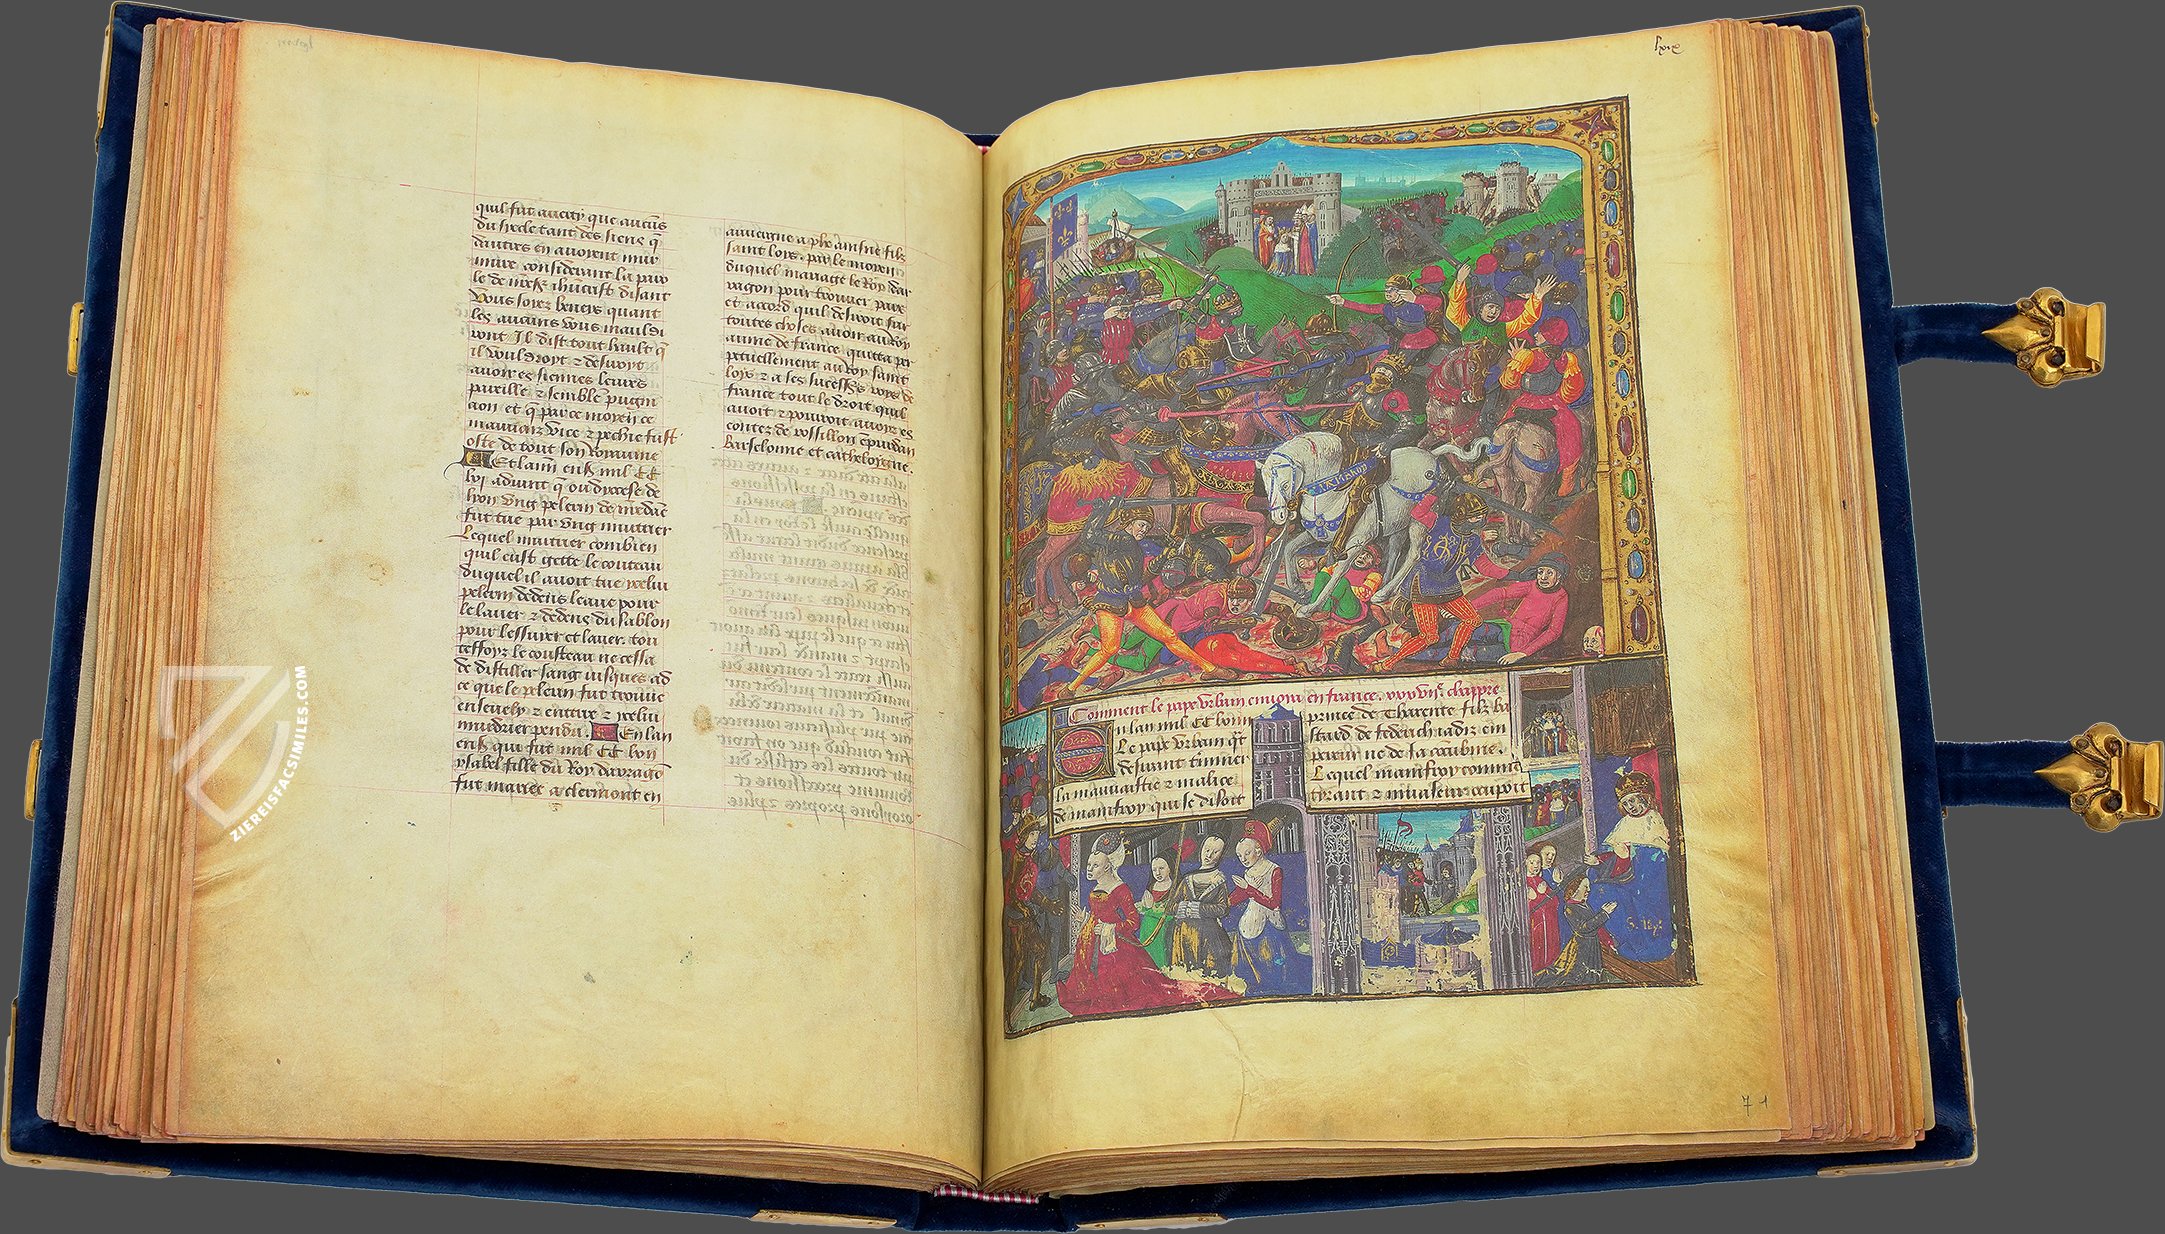 quil fut aucuy que aucūs
du siecle tant des siens q̄
dautres en auoient mur
mure considerant la paro
le de mess ihucrist disant
Vous serez beneis quant
les aucuns vous mauldi
ront Il dist tout hault q̄
il vouldroyt & desiroyt
auoir es siennes leures
pareille & semble pugni
cion et q̄ par ce moyen ce
mauuaix vice & pechie fust
oste de tout son royaume
Et lann ens mil CC
lvj aduint q̄ ou dyocese de
lyon vng pelerin de
fut tue par vng murtrier
Lequel murtrier combien
quil eust gette le couteau
duquel il auoit tue
pelerin dedens leaue pour
le lauer & dedens du sablon
pour lessuyer et lauer. tou
teffoyz le cousteau ne cessa
de distiller sang iusques ad
ce que le pelerin fut trouue
enseuely & enterre &
murdrier pendu. En lan
ens qui fut mil CC lvii
ysabel fille du Roy darragō
fut mariee a clermont en
auuergne a phe ainsne filz
saint loys. par le moyen
duquel mariage le Roy dar
ragon pour trouuer paix
et accord quil desiroit sur
toutes choses auoir au roy
aume de france quitta per
petuellement au roy saint
loys & a ses sucessrs roys de
france tout le droit quil
auoit & pouoit auoir es
contez de rossillon
Barselonne et catheloigne.
lxix
Comment le pape Vrbain enuoya en france. xxxviie. chappre
En lan mil CC lxiiii
Le pape Vrbain qrt
desirant timuer
la mauuaistie & malice
de mamfroy qui se disoit
prince de Tharente filz ba
stard de federich iadiz em
pereur ne de sa concubine.
Lequel mamfroy comme
tyrant & occupoit
S. loys
71
ZIEREISFACSIMILES.COM